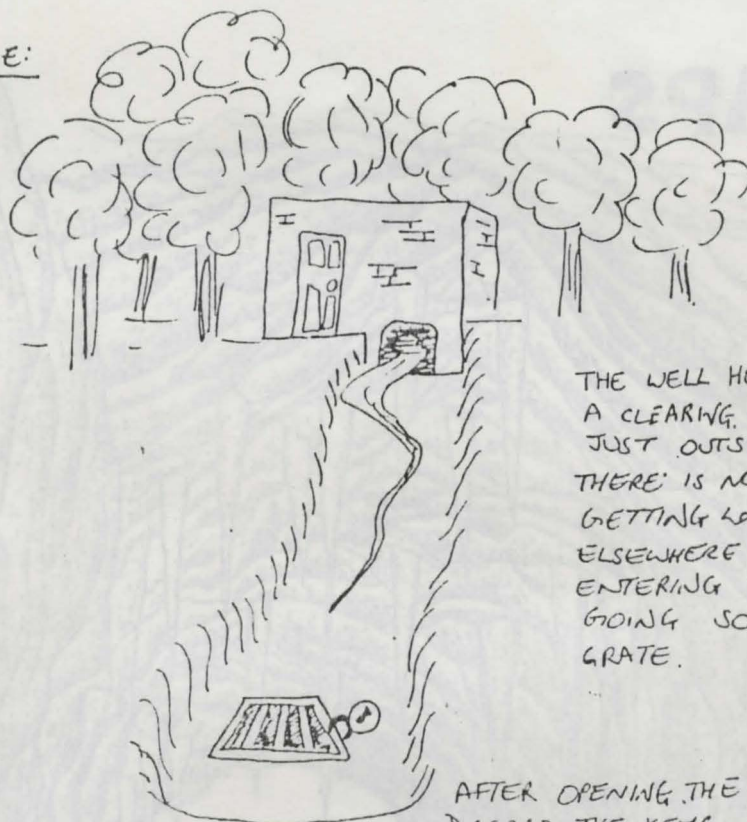 E:
THE WELL HO
A CLEARING.
JUST OUTS
THERE IS NO
GETTING LA
ELSEWHERE
ENTERING
GOING SO
GRATE.
AFTER OPENING THE
THE KEYS